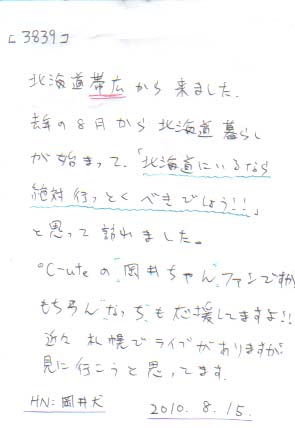 [3839]
北海道帯広から来ました.
去年の8月から北海道暮らし
が始まって、「北海道にいるなら
絶対行っとくべきでしょう!!」
と思って訪れました。
℃-uteの岡井ちゃんファンですが
もちろんなっちも応援してますよ!!
近々札幌でライブがありますが
見に行こうと思ってます.
HN:岡井犬 2010.8.15.